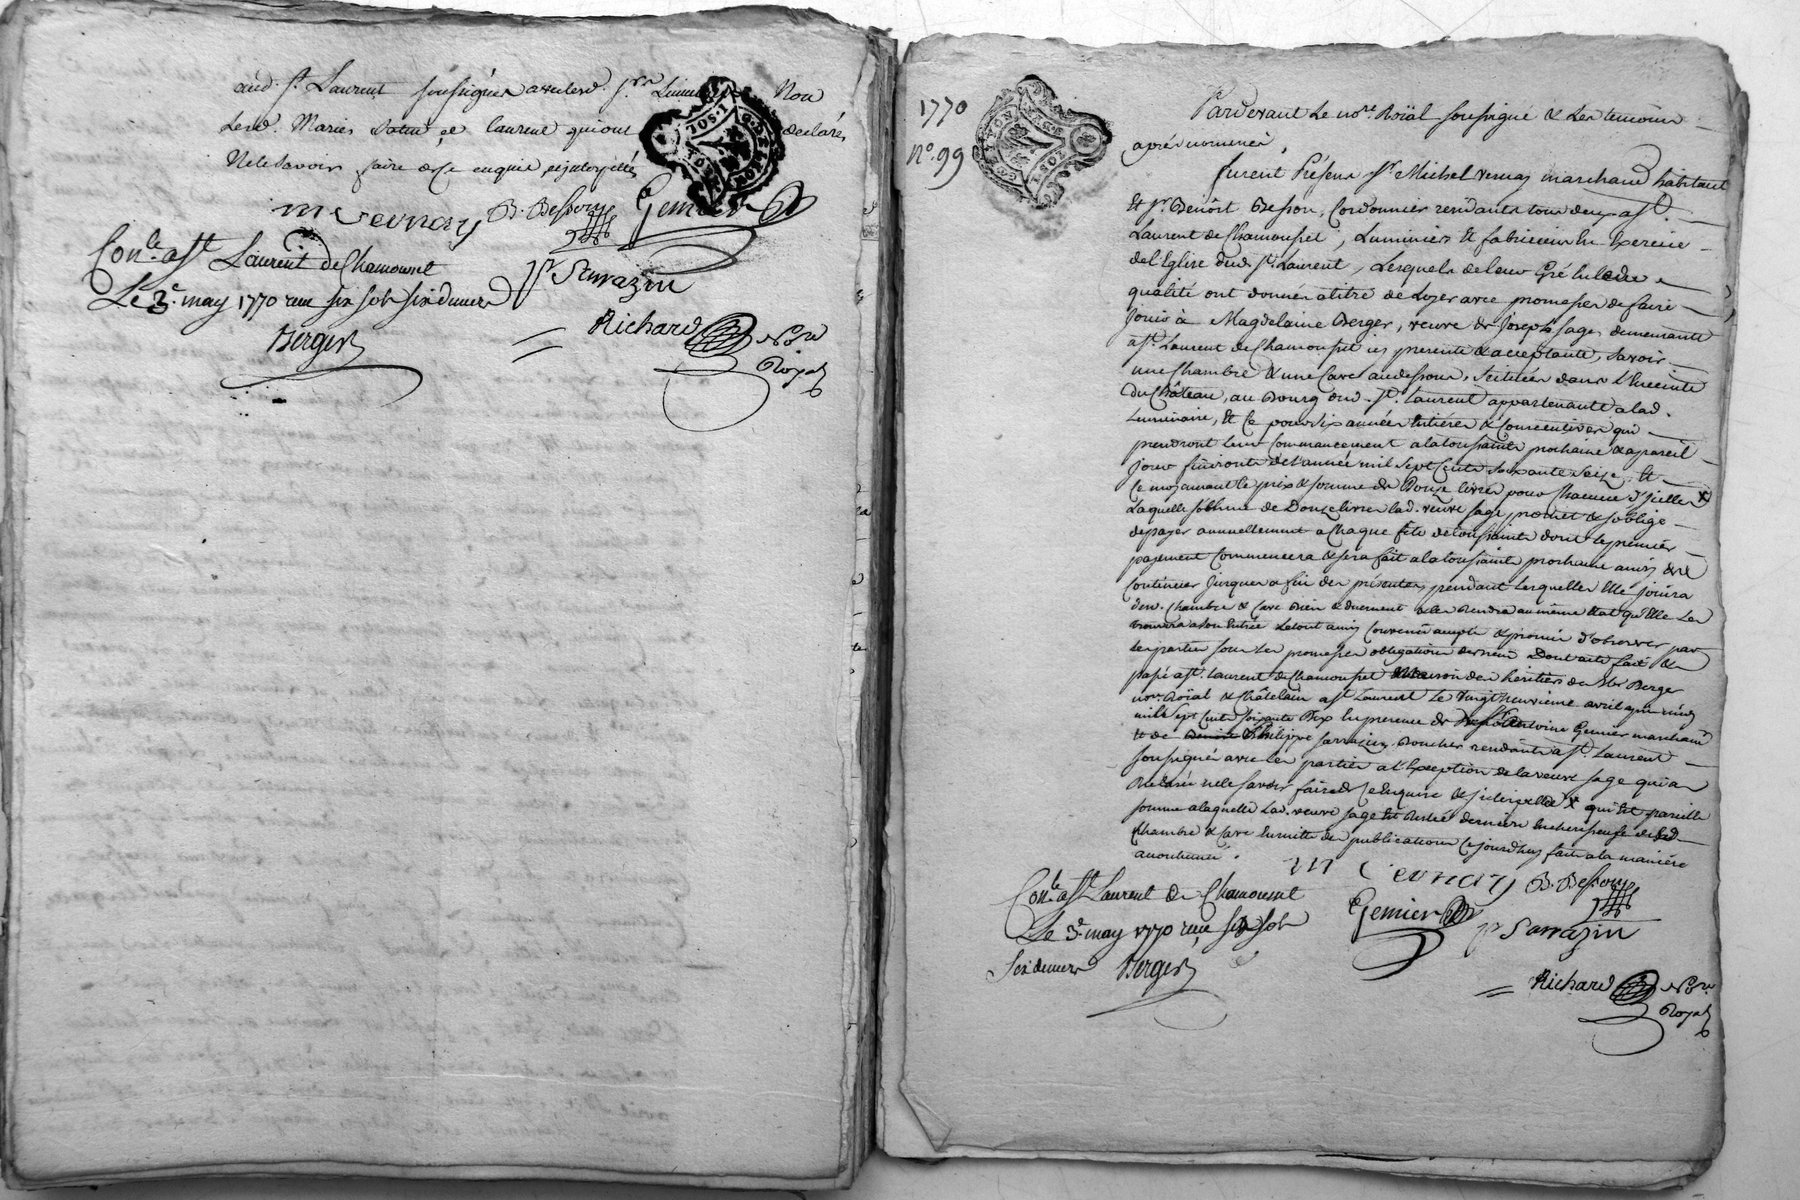 aud. St. Laurent soussignés avec led. Sr. Non
Lesd. Mariés et laurent qui ont declarés
Ne le savoir faire de ce enquis
m vernay B. Besson Gemier
Con.le a St Laurent de Chamousset
Le 3e. may 1770 reçu six sols six deniers
Berger
pr Sarrazin
Richard Nore
Royal
1770
No. 99
Pardevant Le nore. Roïal soussigné & Les temoins
aprés nommés,
furent Présens Sr. Michel vernay marchand habitant
Et Sr. Benoît Besson, Cordonnier residants tous deux a St.
Laurent de Chamousset, Luminiers Et fabriciens En Exercice
de l'Eglise dud. St. Laurent, Lesquels de leur Gré
qualité ont donnés a titre de Loyer avec promesse de faire
Jouir à Magdelaine Berger, veuve de Joseph Sage, demeurante
a St. Laurent de Chamousset icy presente & acceptante, Savoir
une Chambre & une Cave au dessous, Scituées dans L'Enceinte
Du Château, au Bourg dud. St. Laurent appartenante a lad.
Luminaire, Et Ce pour six années Entiéres & Consecutives qui
prendront leur Commancement a la toussaints prochaine & a pareil
Jour finiront de l'année mil sept Cents soixante seize, Et
Ce moyenant le prix & somme de Douze livres pour Chacune d'Jcelles x
Laquelle somme de Douze livres lad. veuve Sage, promet & s'oblige
de payer annuellement a Chaque fête de toussaints dont le premier
payement Commencera & sera fait a la toussaints prochaine ainsi
Continuer Jusques a fin des présentes, pendant Lesquelles Elle joüira
desd. Chambre & Cave Bien & duement & les Rendra au même Etat qu'Elle Les
trouvera a son Entrée Le tout ainsy Convenu accepté & promis d'observer par
Les parties sous Les promesses obligations Dont acte fait &
passé a St. Laurent de Chamousset Maison des héritiers de Me Berger
nore. Roïal & Châtelain a St Laurent Le vingt neuvieme avril aprés midy
mil sept Cents soixante Dix En presence de Sr. Antoine Gemier marchand
Et de Philippe Sarrazin Boucher residants a St. Laurent
soussignés avec Les parties a l'Exception de la veuve Sage qui a
Declaré ne le savoir faire de Ce Enquise & x qui Est pareille
somme a laquelle Lad. veuve Sage Est Restée derniére Encherisseuse desd.
Chambre & Cave Ensuitte des publications Ce jourd'huy faites a la maniére
accoutumée.
m vernay B. Besson
Con.le a St Laurent de Chamousset
Le 3e. may 1770 reçu six sols
Six deniers Berger
Gemier pr Sarrazin
Richard Nore.
Royal